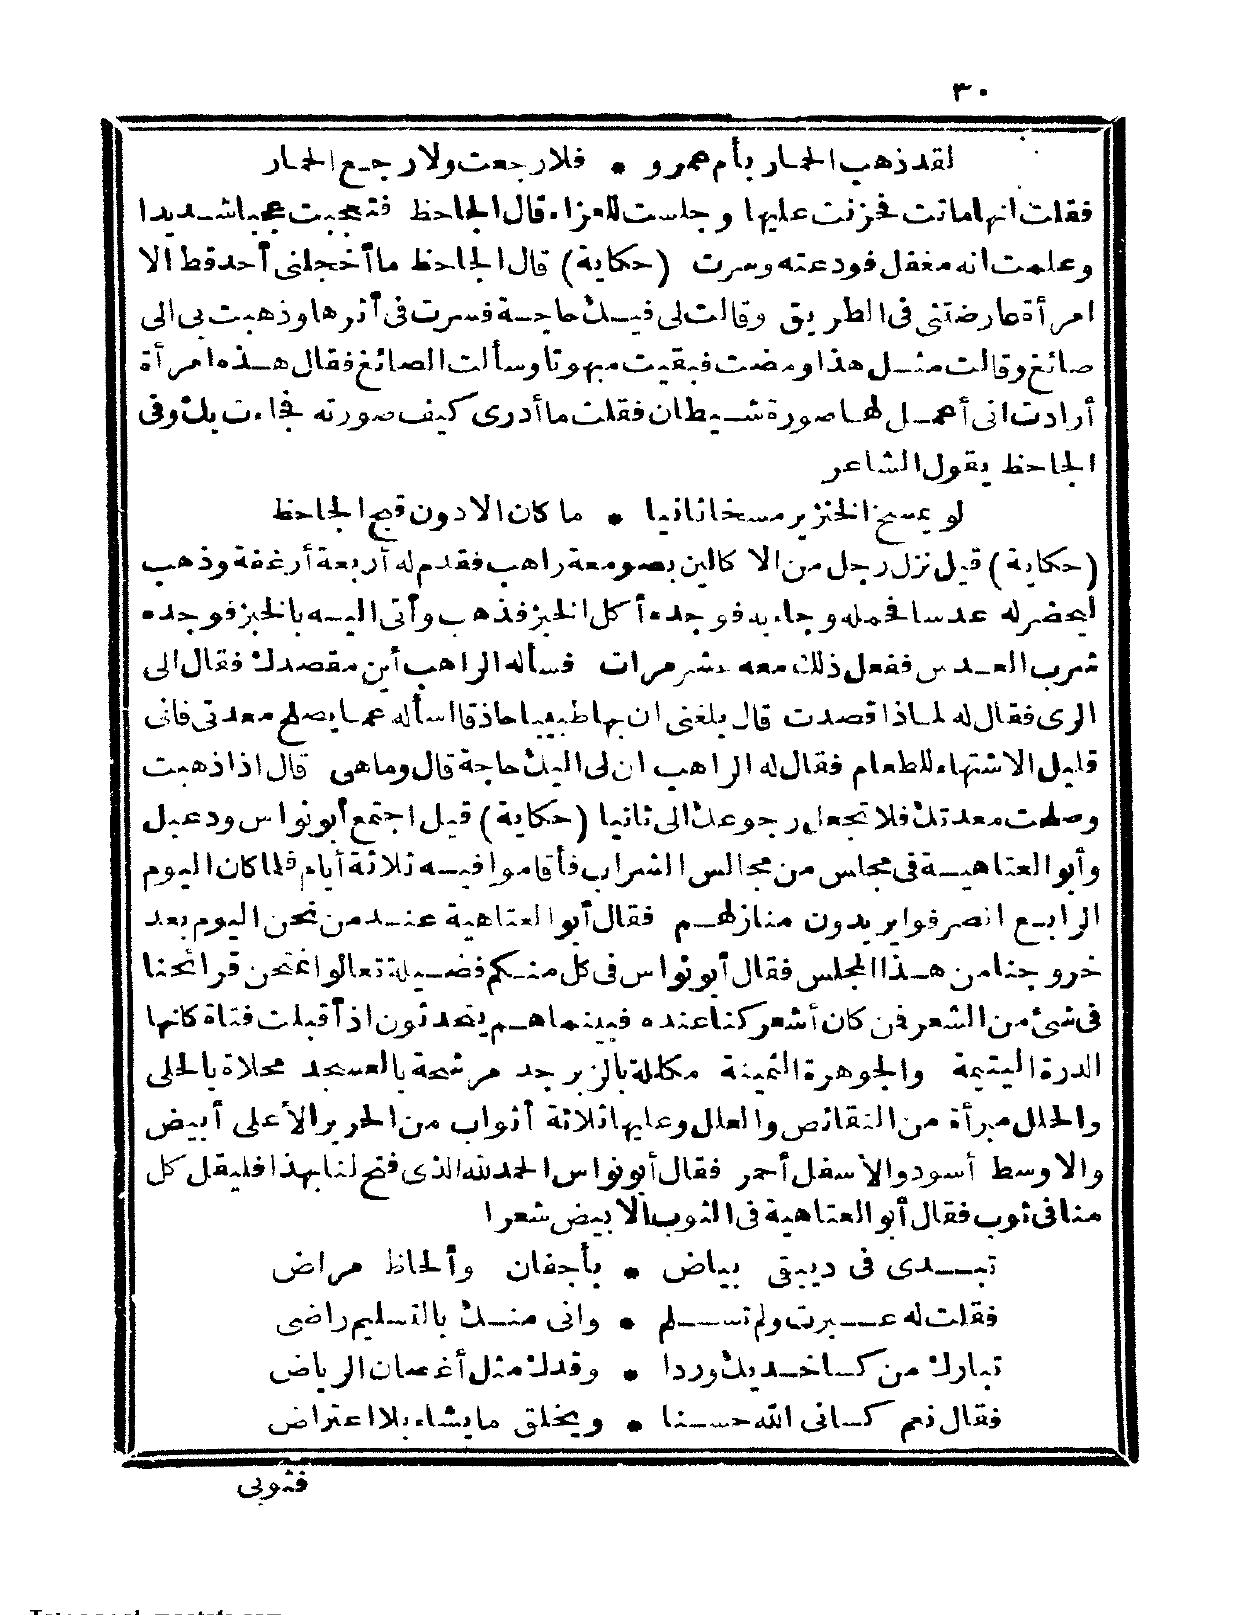 ٣٠
لقد ذهب الحمار بأم عمرو * فلا رجعت ولا رجع الحمار
فقلت انها ماتت فحزنت عليها وجلست للعزاء قال الجاحظ فتعجبت عجبا شديدا
وعلمت انه مغفل فودعته وسرت (حكاية) قال الجاحظ ما أخجلنى أحد قط الا
امرأة عارضتنى فى الطريق وقالت لى فيك حاجة فسرت فى أثرها وذهبت بى الى
صائغ وقالت مثل هذا ومضت فبقيت مبهوتا وسألت الصائغ فقال هذه امرأة
أرادت انى أعمل لها صورة شيطان فقلت ما أدرى كيف صورته فجاءت بك وفى
الجاحظ يقول الشاعر
لو يمسخ الخنزير مسخا ثانيا * ما كان الا دون قبح الجاحظ
(حكاية) قيل نزل رجل من الا كالين بصومعة راهب فقدم له أربعة أرغفة وذهب
ليحضر له عدسا فحمله وجاء به فوجده أكل الخبز فذهب وأتى اليه بالخبز فوجده
شرب العدس ففعل ذلك معه عشر مرات فسأله الراهب أين مقصدك فقال الى
الرى فقال له لماذا قصدت قال بلغنى ان بها طبيبا حاذقا اسأله عما يصلح معدتى فانى
قليل الاشتهاء للطعام فقال له الراهب ان لى اليك حاجة قال وما هى قال اذا ذهبت
وصلحت معدتك فلا تجعل رجوعك الى ثانيا (حكاية) قيل اجتمع أبو نواس ودعبل
وأبو العتاهية فى مجلس من مجالس الشراب فأقاموا فيه ثلاثة أيام فلما كان اليوم
الرابع انصرفوا يريدون منازلهم فقال أبو العتاهية عند من نحن اليوم بعد
خروجنا من هذا المجلس فقال أبو نواس فى كل منكم فضيلة تعالوا نمتحن قرائحنا
فى شئ من الشعر فمن كان أشعر كنا عنده فبينما هم يتحدثون اذ أقبلت فتاة كانها
الدرة اليتيمة والجوهرة الثمينة مكللة بالزبرجد مرشحة بالعسجد محلاة بالحلى
والحلل مبرأة من النقائص والعلل وعليها ثلاثة أثواب من الحرير الأعلى أبيض
والاوسط أسود والاسفل أحمر فقال أبو نواس الحمد لله الذى فتح لنا بهذا فليقل كل
منا فى ثوب فقال أبو العتاهية فى الثوب الابيض شعرا
تبدى فى دبيقى بياض * بأجفان وألحاظ مراض
فقلت له عبرت ولم تسلم * وانى منك بالتسليم راضى
تبارك من كسا خديك وردا * وقدك مثل أغصان الرياض
فقال نعم كسانى الله حسنا * ويخلق ما يشاء بلا اعتراض
فثوبى